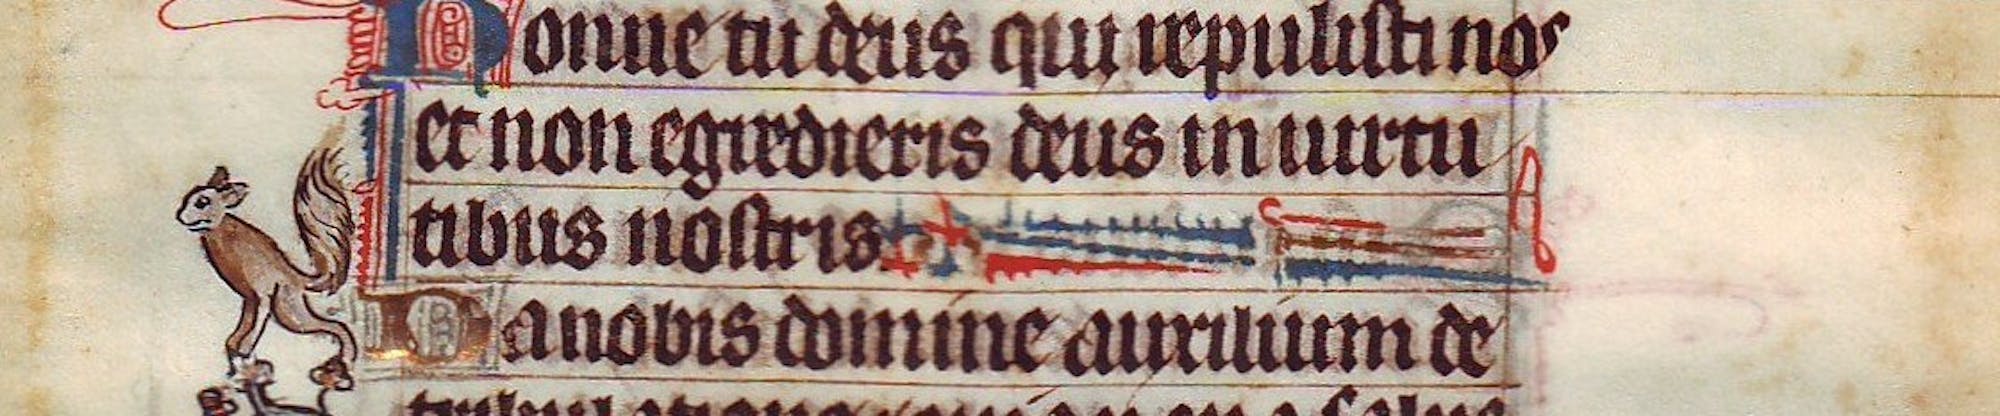 Nonne tu deus qui repulisti nos
et non egredieris deus in uirtu
tibus nostris
Da nobis domine auxilium de
tribulatione